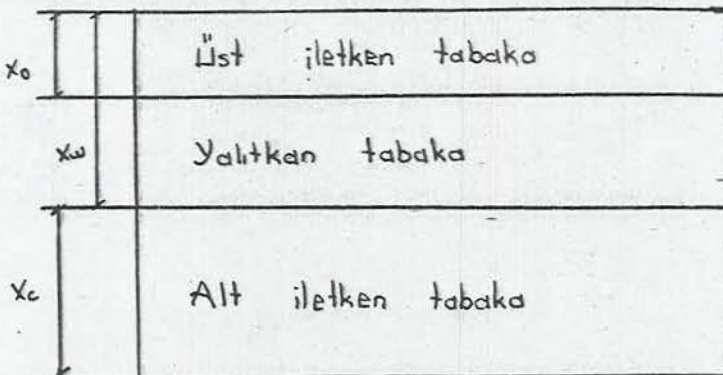 x₀ Üst iletken tabaka
xω Yalıtkan tabaka
x_c Alt iletken tabaka